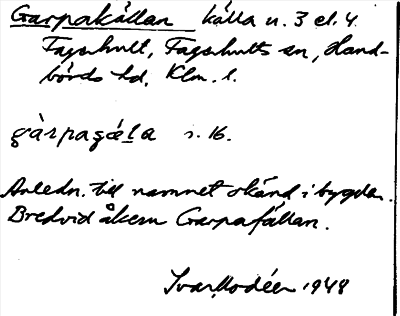 Garpakällan källa n. 3 el. 4.
Fagerhult, Fagerhults sn, Hand-
börds hd, Klm. l.
gàrpaɕɛ́lạ s. 16.
Anledn. till namnet okänd i bygden.
Bredvid åkern Garpafällan.
Ivar Modéer 1948